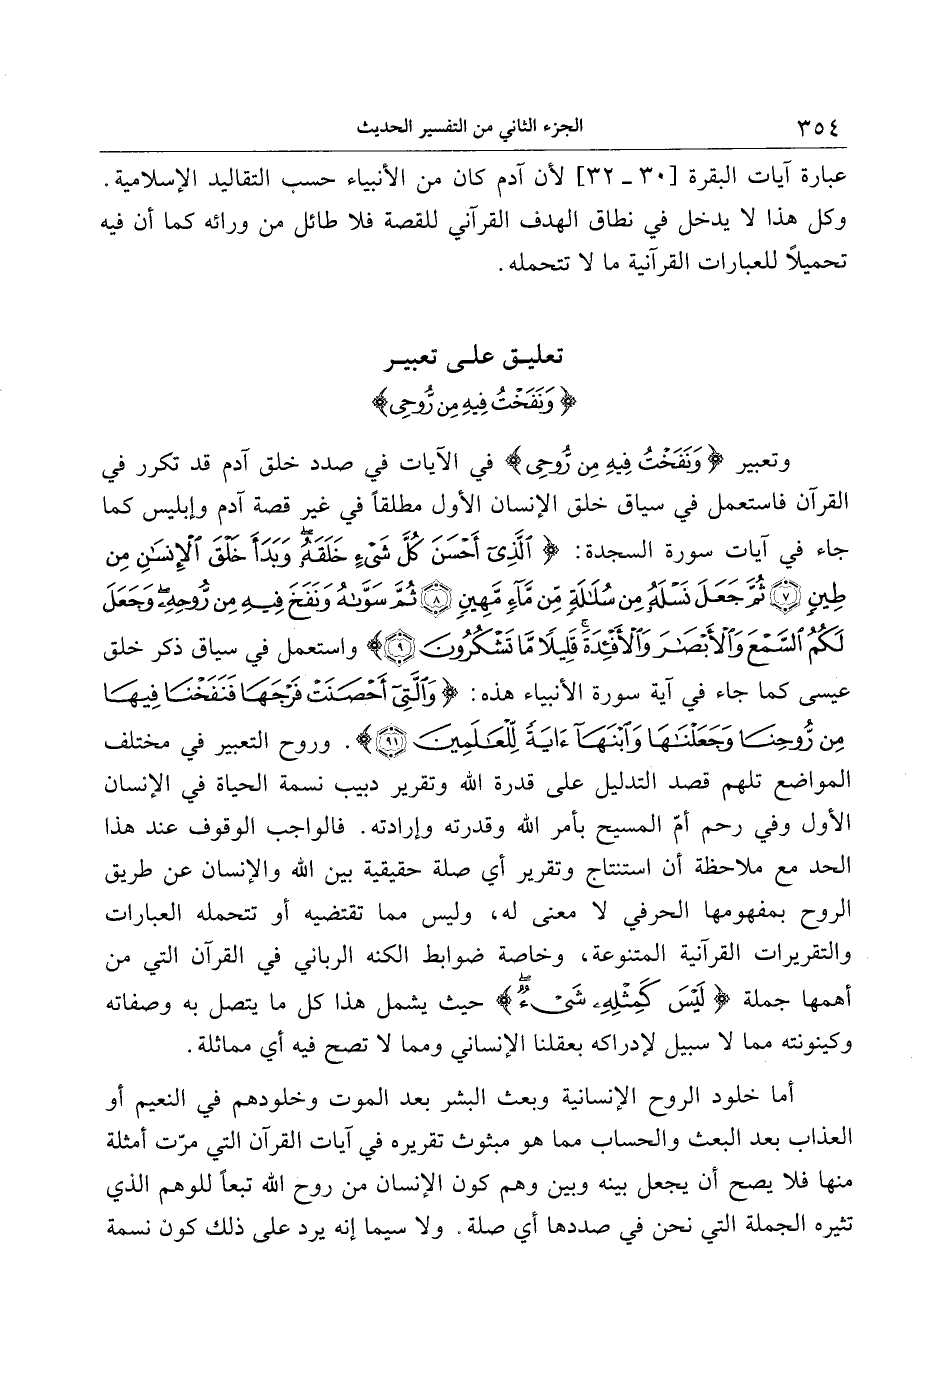 ٣٥٤ الجزء الثاني من التفسير الحديث
عبارة آيات البقرة [٣٠ ـ ٣٢] لأن آدم كان من الأنبياء حسب التقاليد الإسلامية.
وكل هذا لا يدخل في نطاق الهدف القرآني للقصة فلا طائل من ورائه كما أن فيه
تحميلاً للعبارات القرآنية ما لا تتحمله.
تعليـق علـى تعبيـر
﴿ وَنَفَخْتُ فِيهِ مِن رُّوحِى ﴾
وتعبير ﴿ وَنَفَخْتُ فِيهِ مِن رُّوحِى ﴾ في الآيات في صدد خلق آدم قد تكرر في
القرآن فاستعمل في سياق خلق الإنسان الأول مطلقاً في غير قصة آدم وإبليس كما
جاء في آيات سورة السجدة: ﴿ ٱلَّذِىٓ أَحْسَنَ كُلَّ شَىْءٍ خَلَقَهُۥۖ وَبَدَأَ خَلْقَ ٱلْإِنسَٰنِ مِن
طِينٍ ﴿٧﴾ ثُمَّ جَعَلَ نَسْلَهُۥ مِن سُلَٰلَةٍ مِّن مَّآءٍ مَّهِينٍ ﴿٨﴾ ثُمَّ سَوَّىٰهُ وَنَفَخَ فِيهِ مِن رُّوحِهِۦۖ وَجَعَلَ
لَكُمُ ٱلسَّمْعَ وَٱلْأَبْصَٰرَ وَٱلْأَفْـِٔدَةَۚ قَلِيلًا مَّا تَشْكُرُونَ ﴿٩﴾ ﴾ واستعمل في سياق ذكر خلق
عيسى كما جاء في آية سورة الأنبياء هذه: ﴿ وَٱلَّتِىٓ أَحْصَنَتْ فَرْجَهَا فَنَفَخْنَا فِيهَا
مِن رُّوحِنَا وَجَعَلْنَٰهَا وَٱبْنَهَآ ءَايَةً لِّلْعَٰلَمِينَ ﴿٩١﴾ ﴾. وروح التعبير في مختلف
المواضع تلهم قصد التدليل على قدرة الله وتقرير دبيب نسمة الحياة في الإنسان
الأول وفي رحم أمّ المسيح بأمر الله وقدرته وإرادته. فالواجب الوقوف عند هذا
الحد مع ملاحظة أن استنتاج وتقرير أي صلة حقيقية بين الله والإنسان عن طريق
الروح بمفهومها الحرفي لا معنى له، وليس مما تقتضيه أو تتحمله العبارات
والتقريرات القرآنية المتنوعة، وخاصة ضوابط الكنه الرباني في القرآن التي من
أهمها جملة ﴿ لَيْسَ كَمِثْلِهِۦ شَىْءٌۖ ﴾ حيث يشمل هذا كل ما يتصل به وصفاته
وكينونته مما لا سبيل لإدراكه بعقلنا الإنساني ومما لا تصح فيه أي مماثلة.
أما خلود الروح الإنسانية وبعث البشر بعد الموت وخلودهم في النعيم أو
العذاب بعد البعث والحساب مما هو مبثوث تقريره في آيات القرآن التي مرّت أمثلة
منها فلا يصح أن يجعل بينه وبين وهم كون الإنسان من روح الله تبعاً للوهم الذي
تثيره الجملة التي نحن في صددها أي صلة. ولا سيما إنه يرد على ذلك كون نسمة